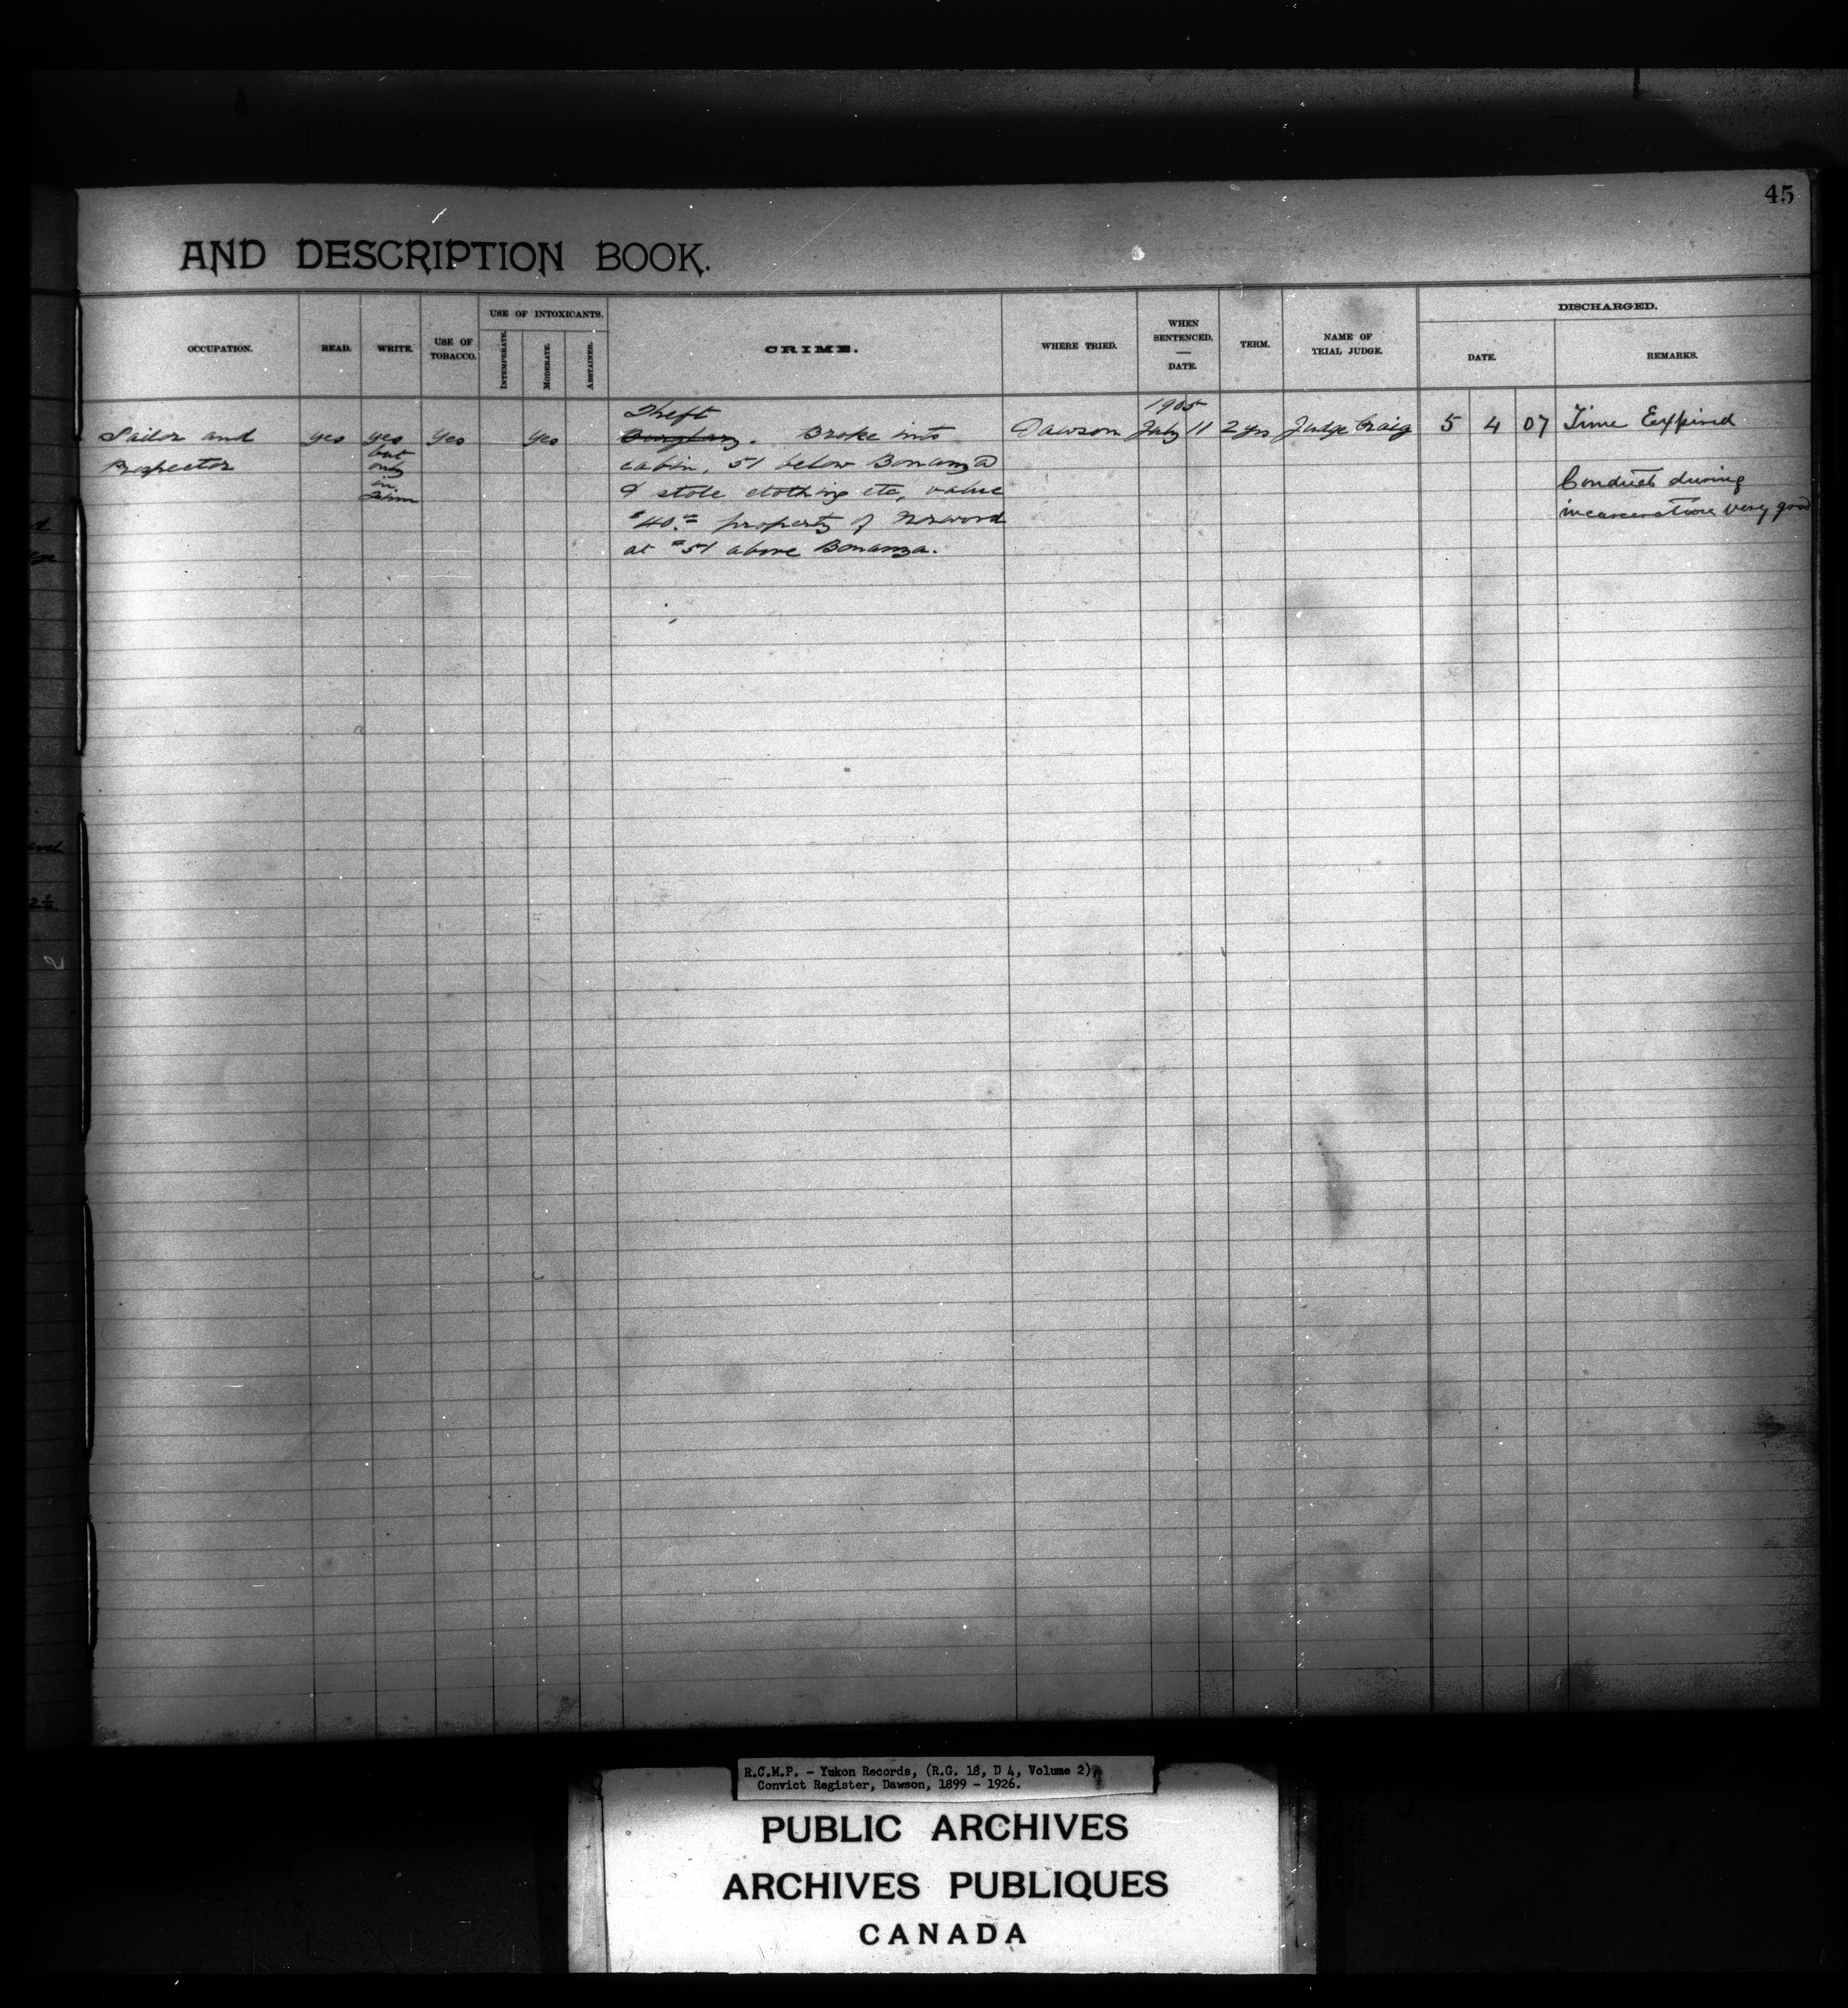 45
AND DESCRIPTION BOOK.
DISCHARGED.
USE OF INTOXICANTS.
OCCUPATION. READ. WRITE. USE OF TOBACCO. INTEMPERATE. MODERATE. ABSTAINER. CRIME. WHERE TRIED. WHEN SENTENCED. — DATE. TERM. NAME OF TRIAL JUDGE. DATE. REMARKS.
Theft 1905
Sailor and yes yes yes yes Burglary. Broke into Dawson July 11 2 yrs Judge Craig 5 4 07 Time Expired
Prospector but only in cabin, 51 below Bonanza
& stole clothing etc, value Conduct during
$40.00 property of Norwood incarceration very good
at #51 above Bonanza.
R.C.M.P. - Yukon Records, (R.G. 18, D 4, Volume 2),
Convict Register, Dawson, 1899 - 1926.
PUBLIC ARCHIVES
ARCHIVES PUBLIQUES
CANADA